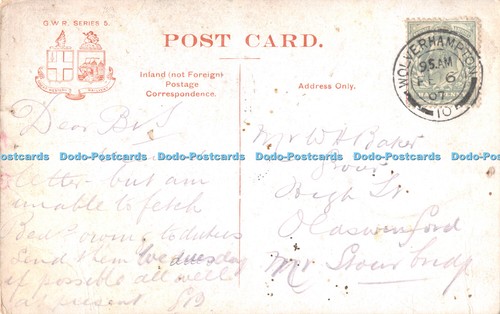 G.W.R. SERIES 5.
POST CARD.
Inland (not Foreign)
Postage
Correspondence.
Address Only.
WOLVERHAMPTON
9 15 AM
6
07
10
Dear B & S
Dodo-Postcards Dodo-Postcards Dodo-Postcards Dodo-Postcards Dodo-Postcards
letter - but am
unable to fetch
Beds owing to duties
Send them Wednesday
if possible all well
at present SB
Mr W H Baker
High St
Oldswinford
Nr Stourbridge